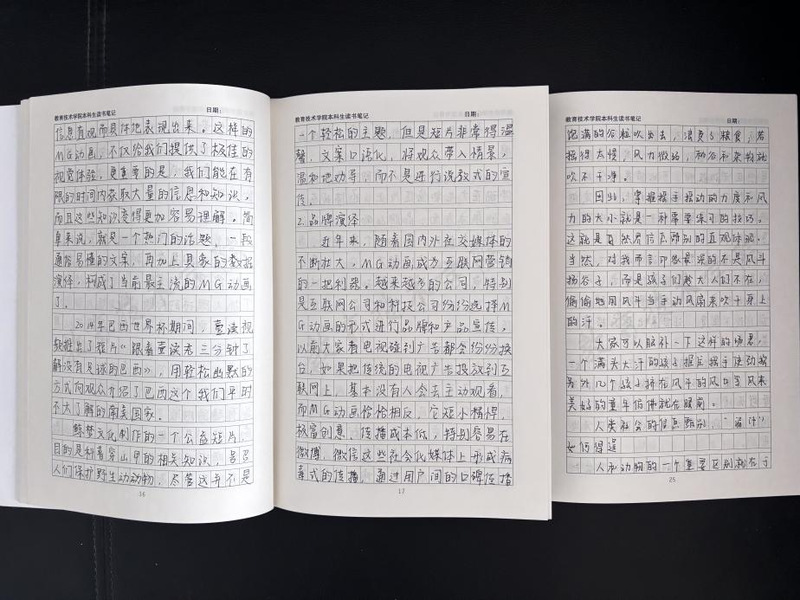 教育技术学院本科生读书笔记 日期:
信息直观而具体地表现出来。这样的
MG动画,不仅给我们提供了极佳的
视觉体验,更重要的是,我们能在有
限的时间内获取大量的信息和知识。
而且这些知识变得更加容易理解。简
单来说,就是一个热门的话题,一段
通俗易懂的文案,再加上具象的数据
演绎,构成了当前最主流的MG动画
了。
2014年巴西世界杯期间,壹读视
频推出了短片《跟着壹读君三分钟了
解没有足球的巴西》,用轻松幽默的
方式向观众介绍了巴西这个我们平时
不大了解的南美国家。
鲸梦文化制作的一个公益短片,
目的是科普穿山甲的相关知识,号召
人们保护野生动动物,尽管这并不是
16
教育技术学院本科生读书笔记 日期:
一个轻松的主题,但是短片非常得温
馨,文案口语化,将观众带入情景,
温和地劝导,而不是进行说教式的宣
传。
2.品牌演绎
近年来,随着国内外社交媒体的
不断壮大,MG动画成为互联网营销
的一把利器。越来越多的公司,特别
是互联网公司和科技公司纷纷选择M
G动画的形式进行品牌和产品宣传。
以前大家看电视碰到广告都会纷纷换
台,如果把传统的电视广告投放到互
联网上,基本没有人会去主动观看,
而MG动画恰恰相反,它短小精悍,
极富创意,传播成本低,特别容易在
微博、微信这些社会化媒体上形成病
毒式的传播,通过用户间的口碑传播
17
教育技术学院本科生读书笔记 日期:
饱满的谷粒吹出去,浪费了粮食;若
摇得太慢,风力微弱,秕谷和杂物就
吹不干净。
因此,掌握摇手摇动的力度和风
力的大小就是一种需要练习的技巧。
这就是自然界信息甄别的直观体现。
当然,对我而言印象最深的不是风斗
扬谷子,而是孩子们趁大人们不在,
偷偷地用风斗当手动风扇来吹干身上
的汗。
大家可以脑补一下这样的场景,
一个满头大汗的孩子握住摇手使劲摇
另外几个孩子挤在风斗的风口享风来
美好的童年仿佛就在眼前。
人类社会的信息甄别,
如何得逞
人和动物的一个重要区别就在于
25